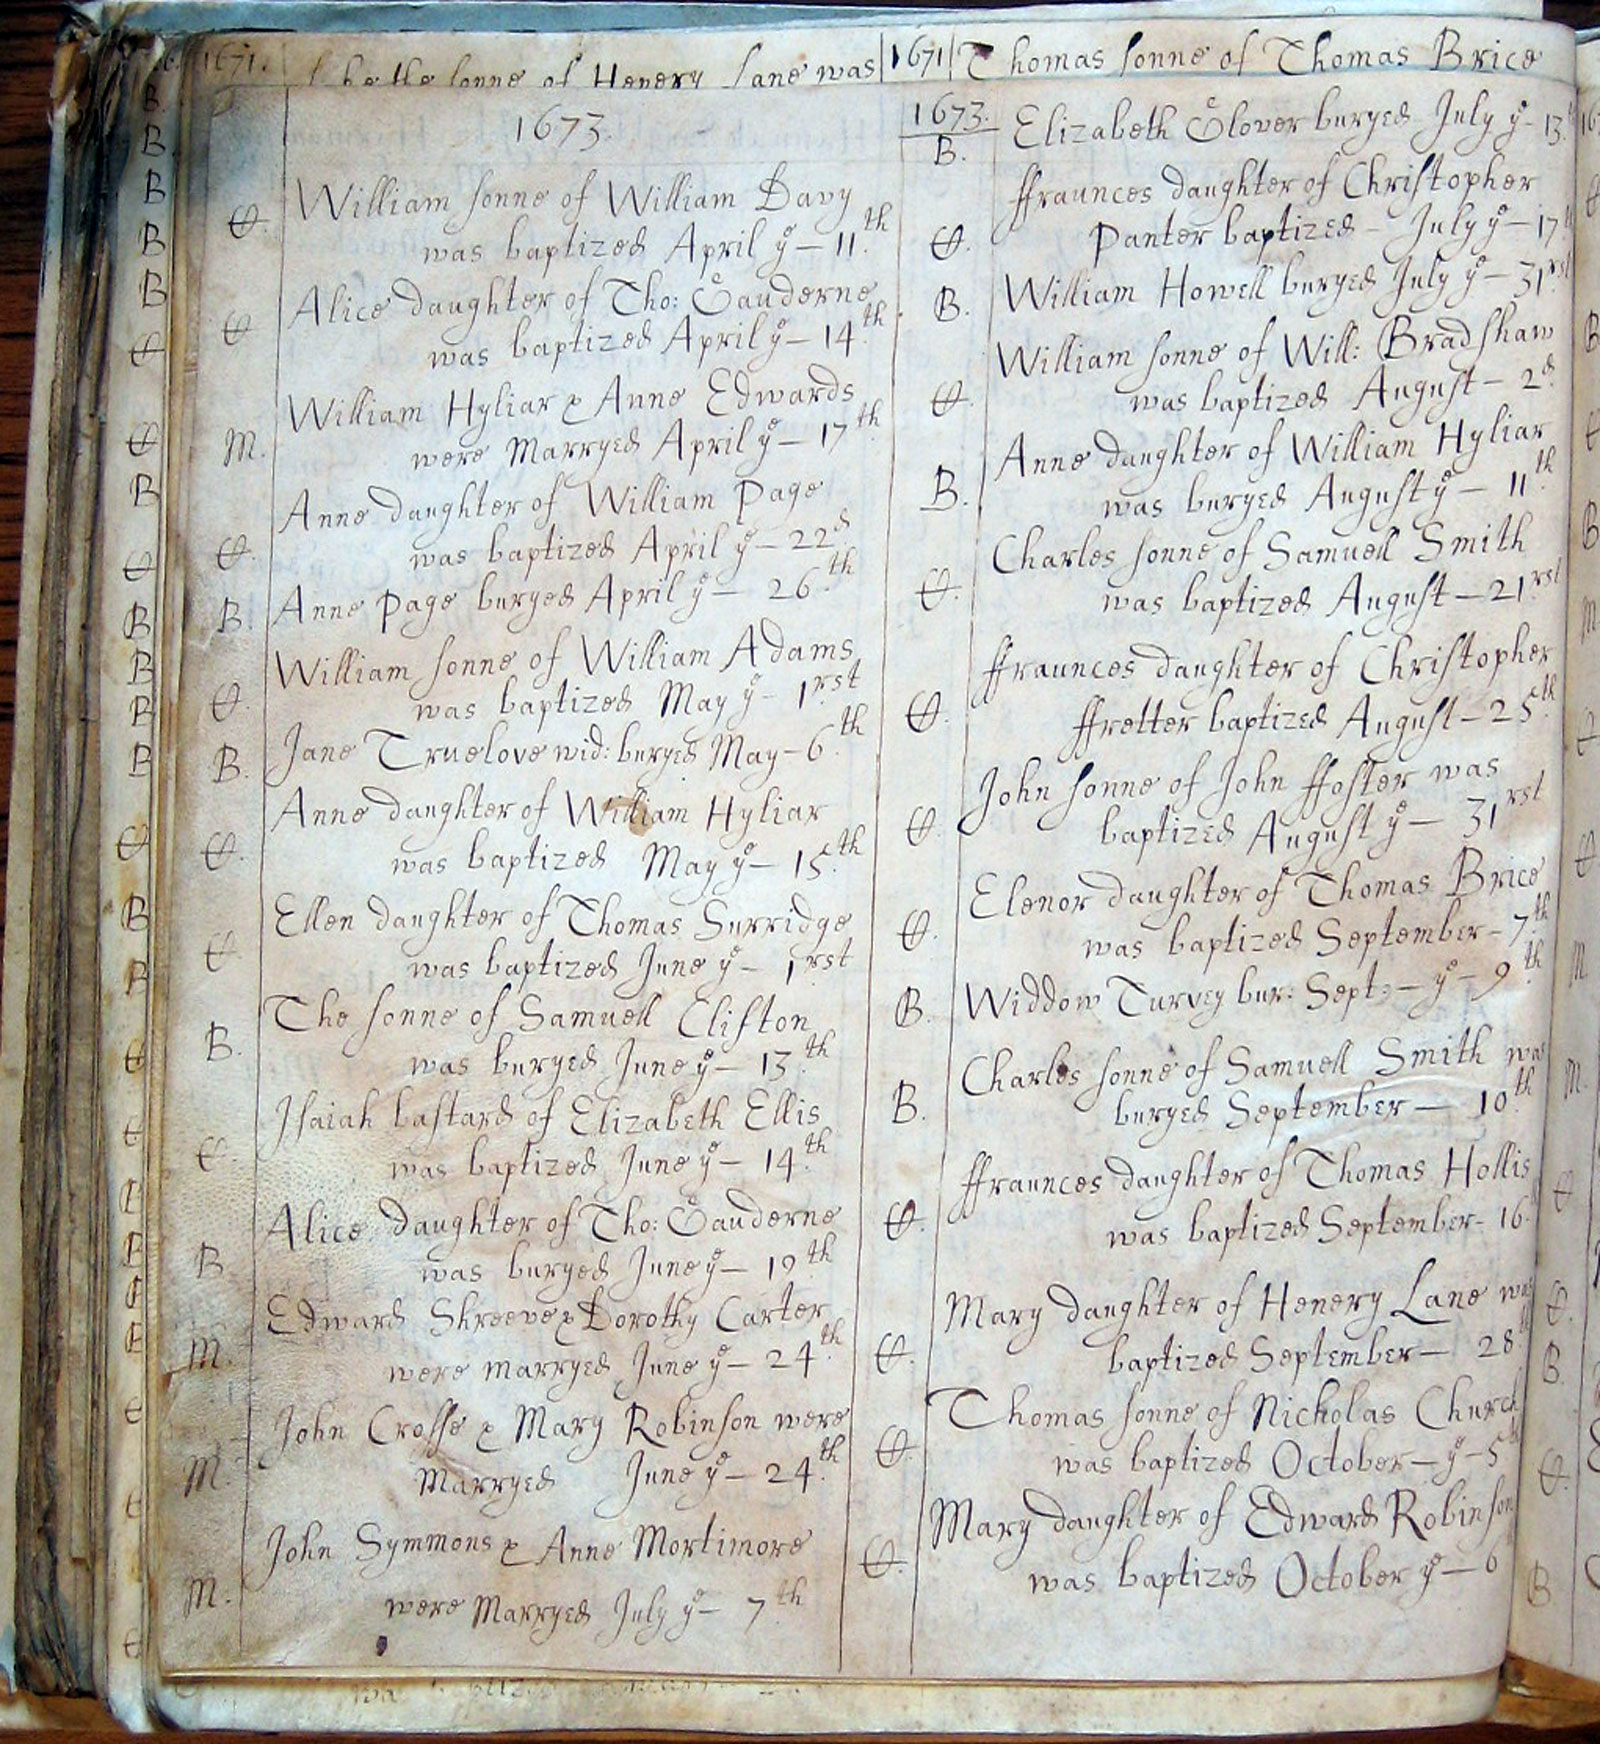 1671.
the sonne of Henery Lane was
1673.
William sonne of William Davy
C. was baptized April yᵉ — 11th
Alice daughter of Tho: Gauderne
C was baptized April yᵉ — 14th
William Hyliar & Anne Edwards
M. were Marryed April yᵉ — 17th
Anne daughter of William Page
C. was baptized April yᵉ — 22d
B. Anne Page buryed April yᵉ — 26th
William sonne of William Adams
C. was baptized May yᵉ - 1rst
B. Jane Truelove wid: buryed May - 6th
Anne daughter of William Hyliar
C. was baptized May yᵉ — 15th
Ellen daughter of Thomas Surridge
C. was baptized June yᵉ — 1rst
The sonne of Samuell Clifton
B. was buryed June yᵉ — 13th
Isaiah bastard of Elizabeth Ellis
C. was baptized June yᵉ — 14th
Alice daughter of Tho: Gauderne
B was buryed June yᵉ — 19th
Edward Shreeve & Dorothy Carter
M. were marryed June yᵉ — 24th
John Crosse & Mary Robinson were
M. Marryed June yᵉ — 24th
John Symmons & Anne Mortimore
M. were Marryed July yᵉ — 7th
1671 Thomas sonne of Thomas Brice
1673. Elizabeth Glover buryed July yᵉ - 13
B.
ffraunces daughter of Christopher
C. Panter baptized - July yᵉ — 17th
B. William Howell buryed July yᵉ — 31rst
William sonne of Will: Bradshaw
C. was baptized August — 2d
Anne daughter of William Hyliar
B. was buryed August yᵉ — 11th
Charles sonne of Samuell Smith
C. was baptized August — 21rst
ffraunces daughter of Christopher
C. ffretter baptized August — 25th
John sonne of John ffoster was
C. baptized August yᵉ — 31rst
Elenor daughter of Thomas Brice
C. was baptized September - 7th
B. Widdow Turvey bur: Sept: — yᵉ - 9th
Charles sonne of Samuell Smith was
B. buryed September — 10th
ffraunces daughter of Thomas Hollis
C. was baptized September - 16
Mary daughter of Henery Lane was
C. baptized September — 28
Thomas sonne of Nicholas Church
C. was baptized October — yᵉ - 5
Mary daughter of Edward Robinson
C. was baptized October yᵉ — 6